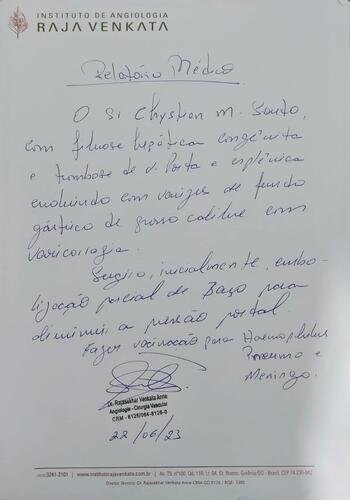 INSTITUTO DE ANGIOLOGIA
RAJA VENKATA
Relatório Médico
O Sr Chystian M. Souto,
com fibrose hepática congênita
e trombose de v. Porta e esplênica
evoluindo com varizes de fundo
gástrico de grosso calibre com
varicorragia.
Sugiro, inicialmente, embo-
lização parcial de Baço para
diminuir a pressão portal.
Fazer vacinação para Haemophilus
Pneumo e
Meningo.
Dr. Rajasekhar Venkata Anne
Angiologia - Cirurgia Vascular
CRM - 8126/064-8126-0
22/06/23
3241-2101 | www.institutorajavenkata.com.br | Av. T5, nº100, Qd. 118, Lt. 04, St. Bueno, Goiânia/GO - Brasil, CEP 74.230-042
Diretor Técnico: Dr. Rajasekhar Venkata Anne CRM-GO 8126 /